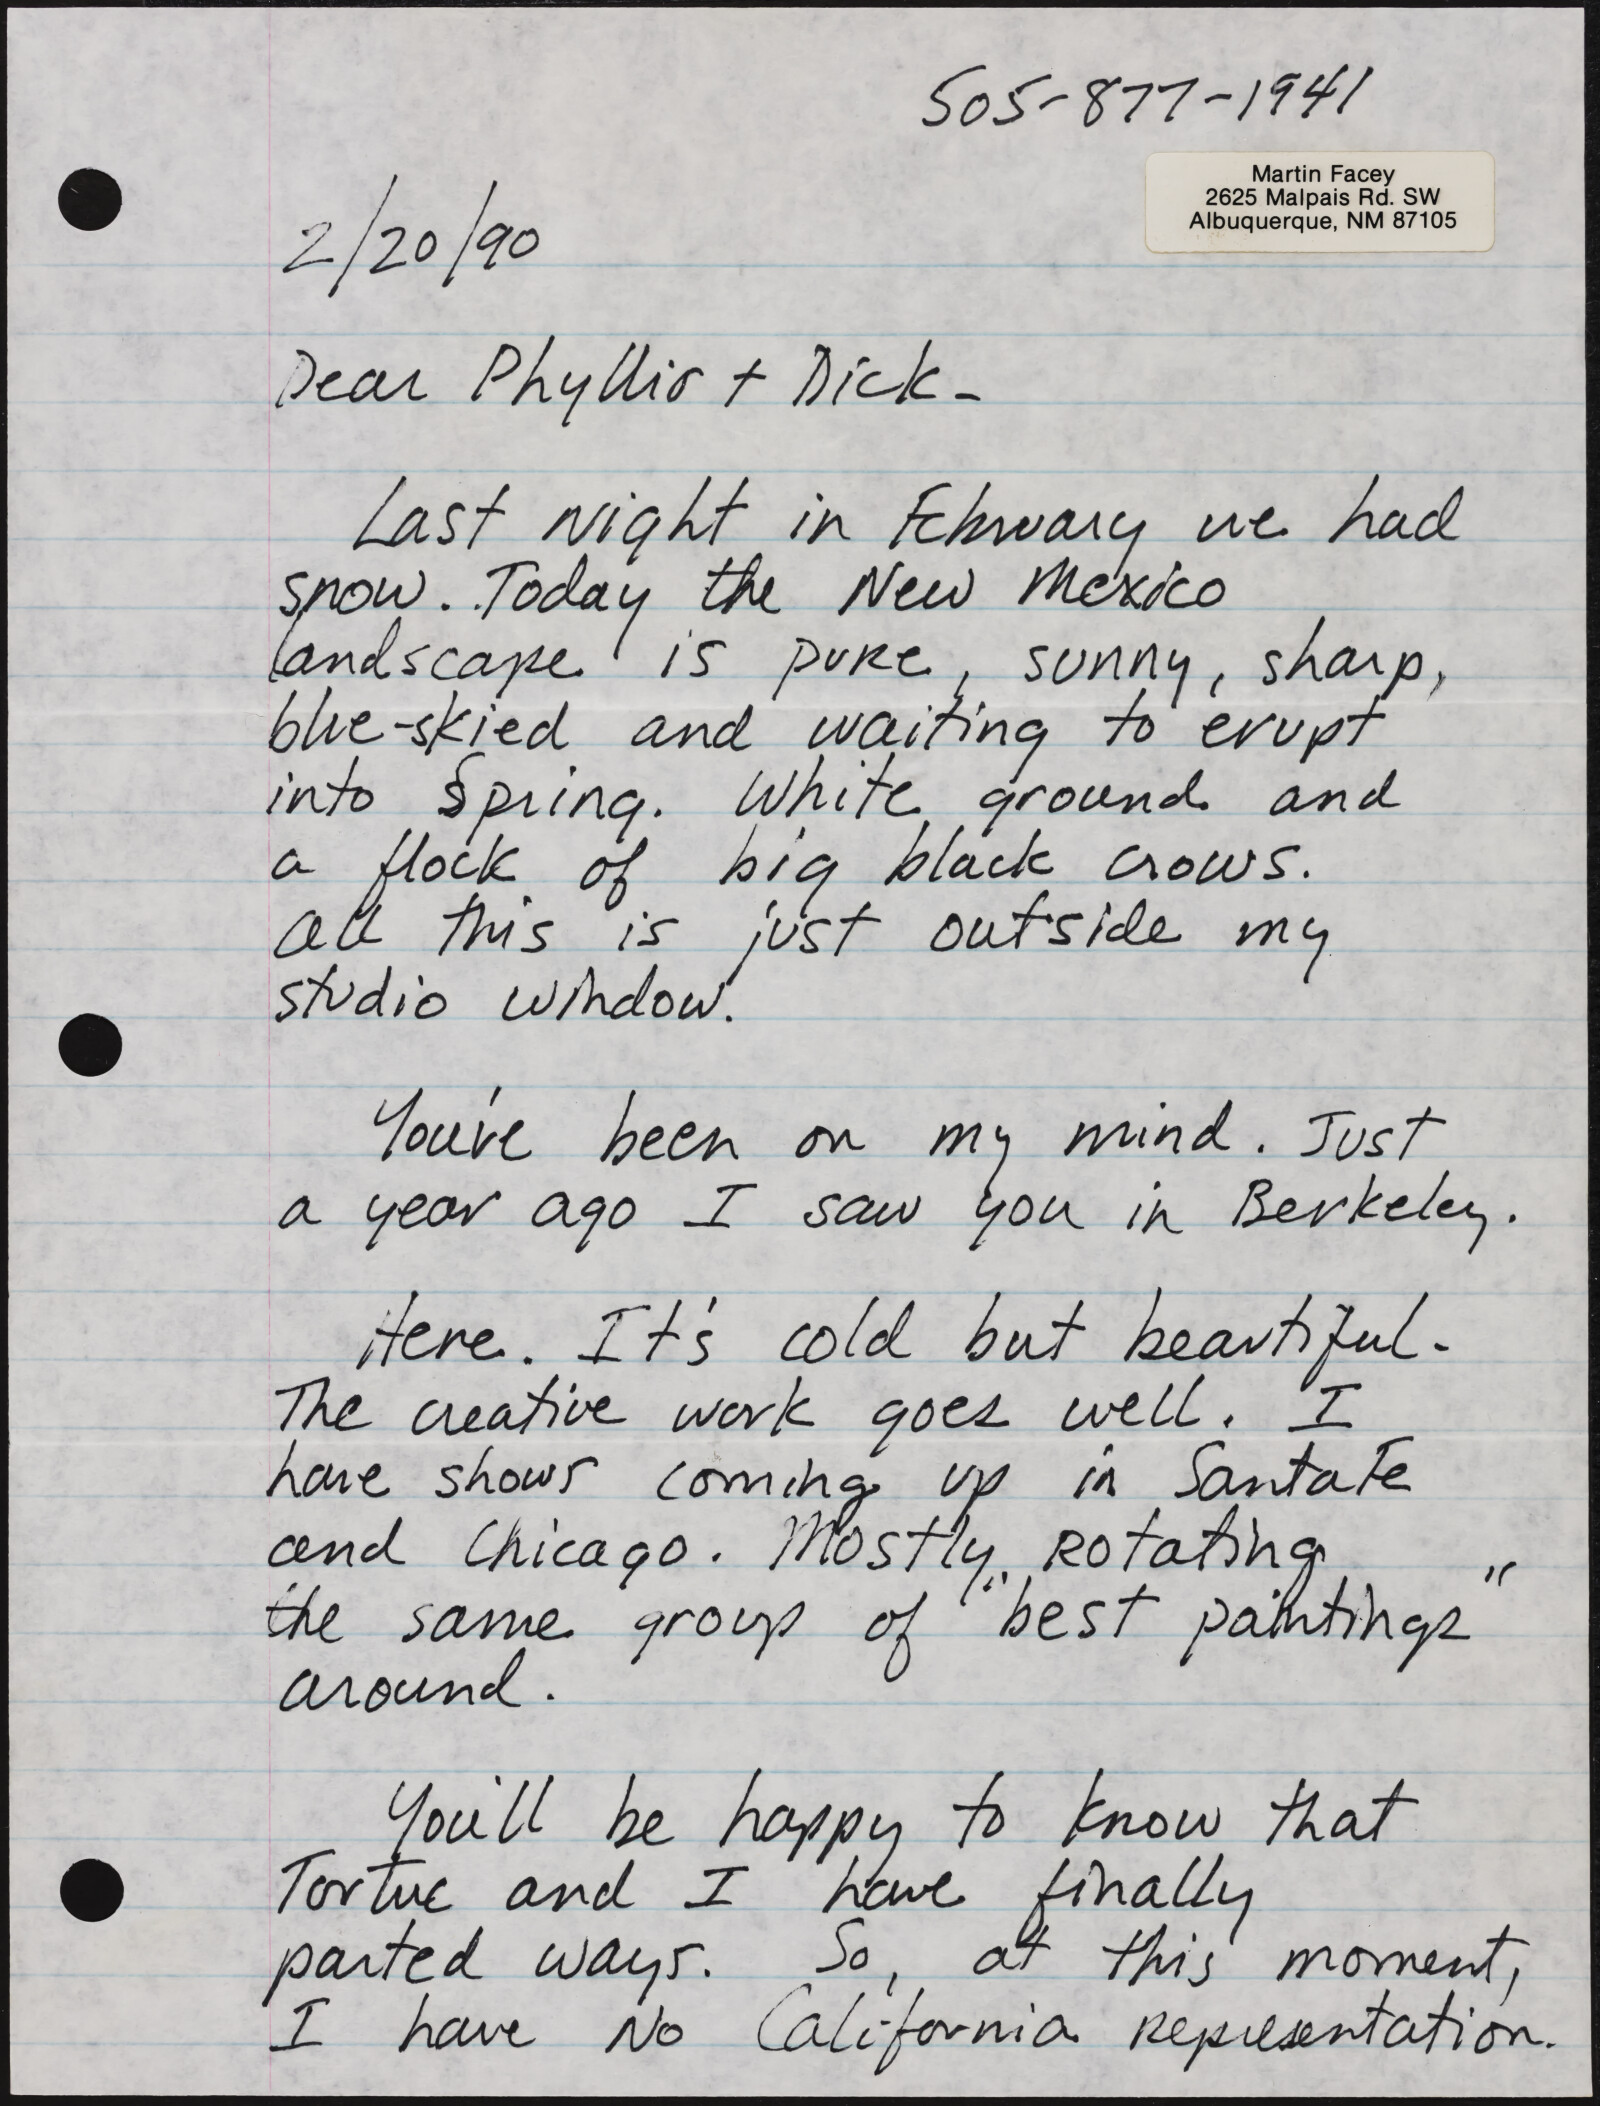 505-877-1941
Martin Facey
2625 Malpais Rd. SW
Albuquerque, NM 87105
2/20/90
Dear Phyllis + Dick-
Last night in February we had
snow. Today the New Mexico
landscape is pure, sunny, sharp,
blue-skied and waiting to erupt
into Spring. White ground and
a flock of big black crows.
All this is just outside my
studio window.
You've been on my mind. Just
a year ago I saw you in Berkeley.
Here. It's cold but beautiful.
The creative work goes well. I
have shows coming up in Santa Fe
and Chicago. Mostly rotating
the same group of "best paintings"
around.
You'll be happy to know that
Tortue and I have finally
parted ways. So, at this moment,
I have no California representation.